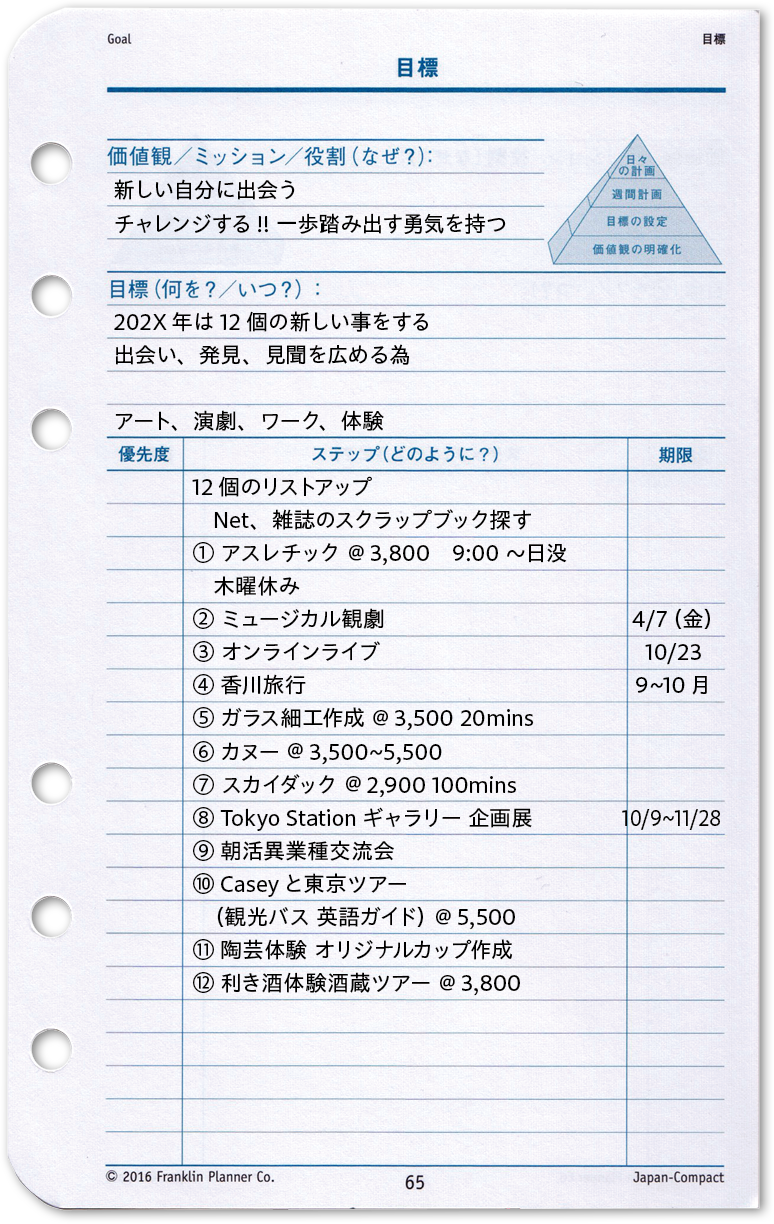 Goal
目標
目標
価値観／ミッション／役割（なぜ？）：
新しい自分に出会う
チャレンジする!! 一歩踏み出す勇気を持つ
日々
の計画
週間計画
目標の設定
価値観の明確化
目標（何を？／いつ？）：
202X 年は 12 個の新しい事をする
出会い、発見、見聞を広める為
アート、演劇、ワーク、体験
優先度 ステップ（どのように？） 期限
12 個のリストアップ
Net、雑誌のスクラップブック探す
① アスレチック @ 3,800 9:00 〜日没
木曜休み
② ミュージカル観劇 4/7（金）
③ オンラインライブ 10/23
④ 香川旅行 9~10 月
⑤ ガラス細工作成 @ 3,500 20mins
⑥ カヌー @ 3,500~5,500
⑦ スカイダック @ 2,900 100mins
⑧ Tokyo Station ギャラリー 企画展 10/9~11/28
⑨ 朝活異業種交流会
⑩ Casey と東京ツアー
（観光バス 英語ガイド）@ 5,500
⑪ 陶芸体験 オリジナルカップ作成
⑫ 利き酒体験酒蔵ツアー @ 3,800
© 2016 Franklin Planner Co. 65 Japan-Compact